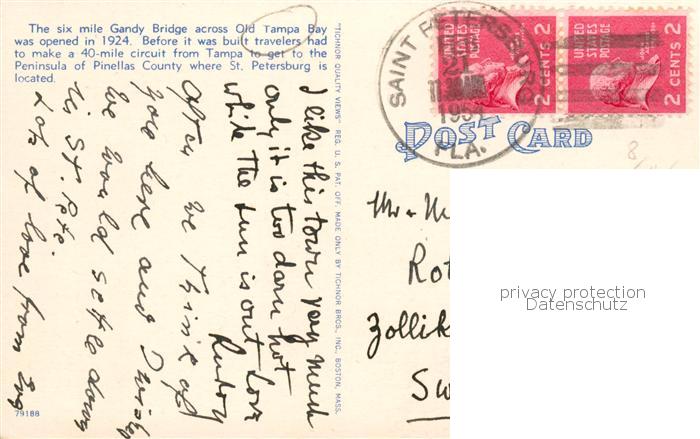 The six mile Gandy Bridge across Old Tampa Bay
was opened in 1924. Before it was built travelers had
to make a 40-mile circuit from Tampa to get to the
Peninsula of Pinellas County where St. Petersburg is
located.
I like this town very much
only it is too darn hot
while the sun is out Love
Rudoy
often we think of
you here and I wish
we would settle down
in St. Pete
Lots of love from Ing
79188
"TICHNOR QUALITY VIEWS" REG. U. S. PAT. OFF. MADE ONLY BY TICHNOR BROS., INC., BOSTON, MASS.
SAINT PETERSBURG
FLA.
UNITED STATES POSTAGE
2 CENTS 2
UNITED STATES POSTAGE
2 CENTS 2
POST CARD
8
Mr + M
Rot
Zollik
Sw
privacy protection
Datenschutz